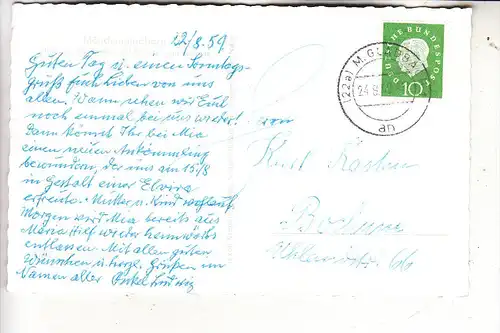 22/8.59
Guten Tag u. einen Sonntags-
gruß Euch Lieben von uns
allen. Wann sehen wir Euch
noch einmal bei uns wieder?
Dann könnt Ihr bei Mia
einen neuen Ankömmling
bewundern, der uns am 15/8
in Gestalt einer Elvira
erfreute. Mutter u. Kind wohlauf.
Morgen wird Mia bereits aus
Maria Hilf wieder heimwärts
entlassen. Mit allen guten
Wünschen u. herzl. Grüßen im
Namen aller Onkel Ludwig
DEUTSCHE BUNDESPOST
10
(22a) M.
24.8.
an
Kurt
Bochum
66